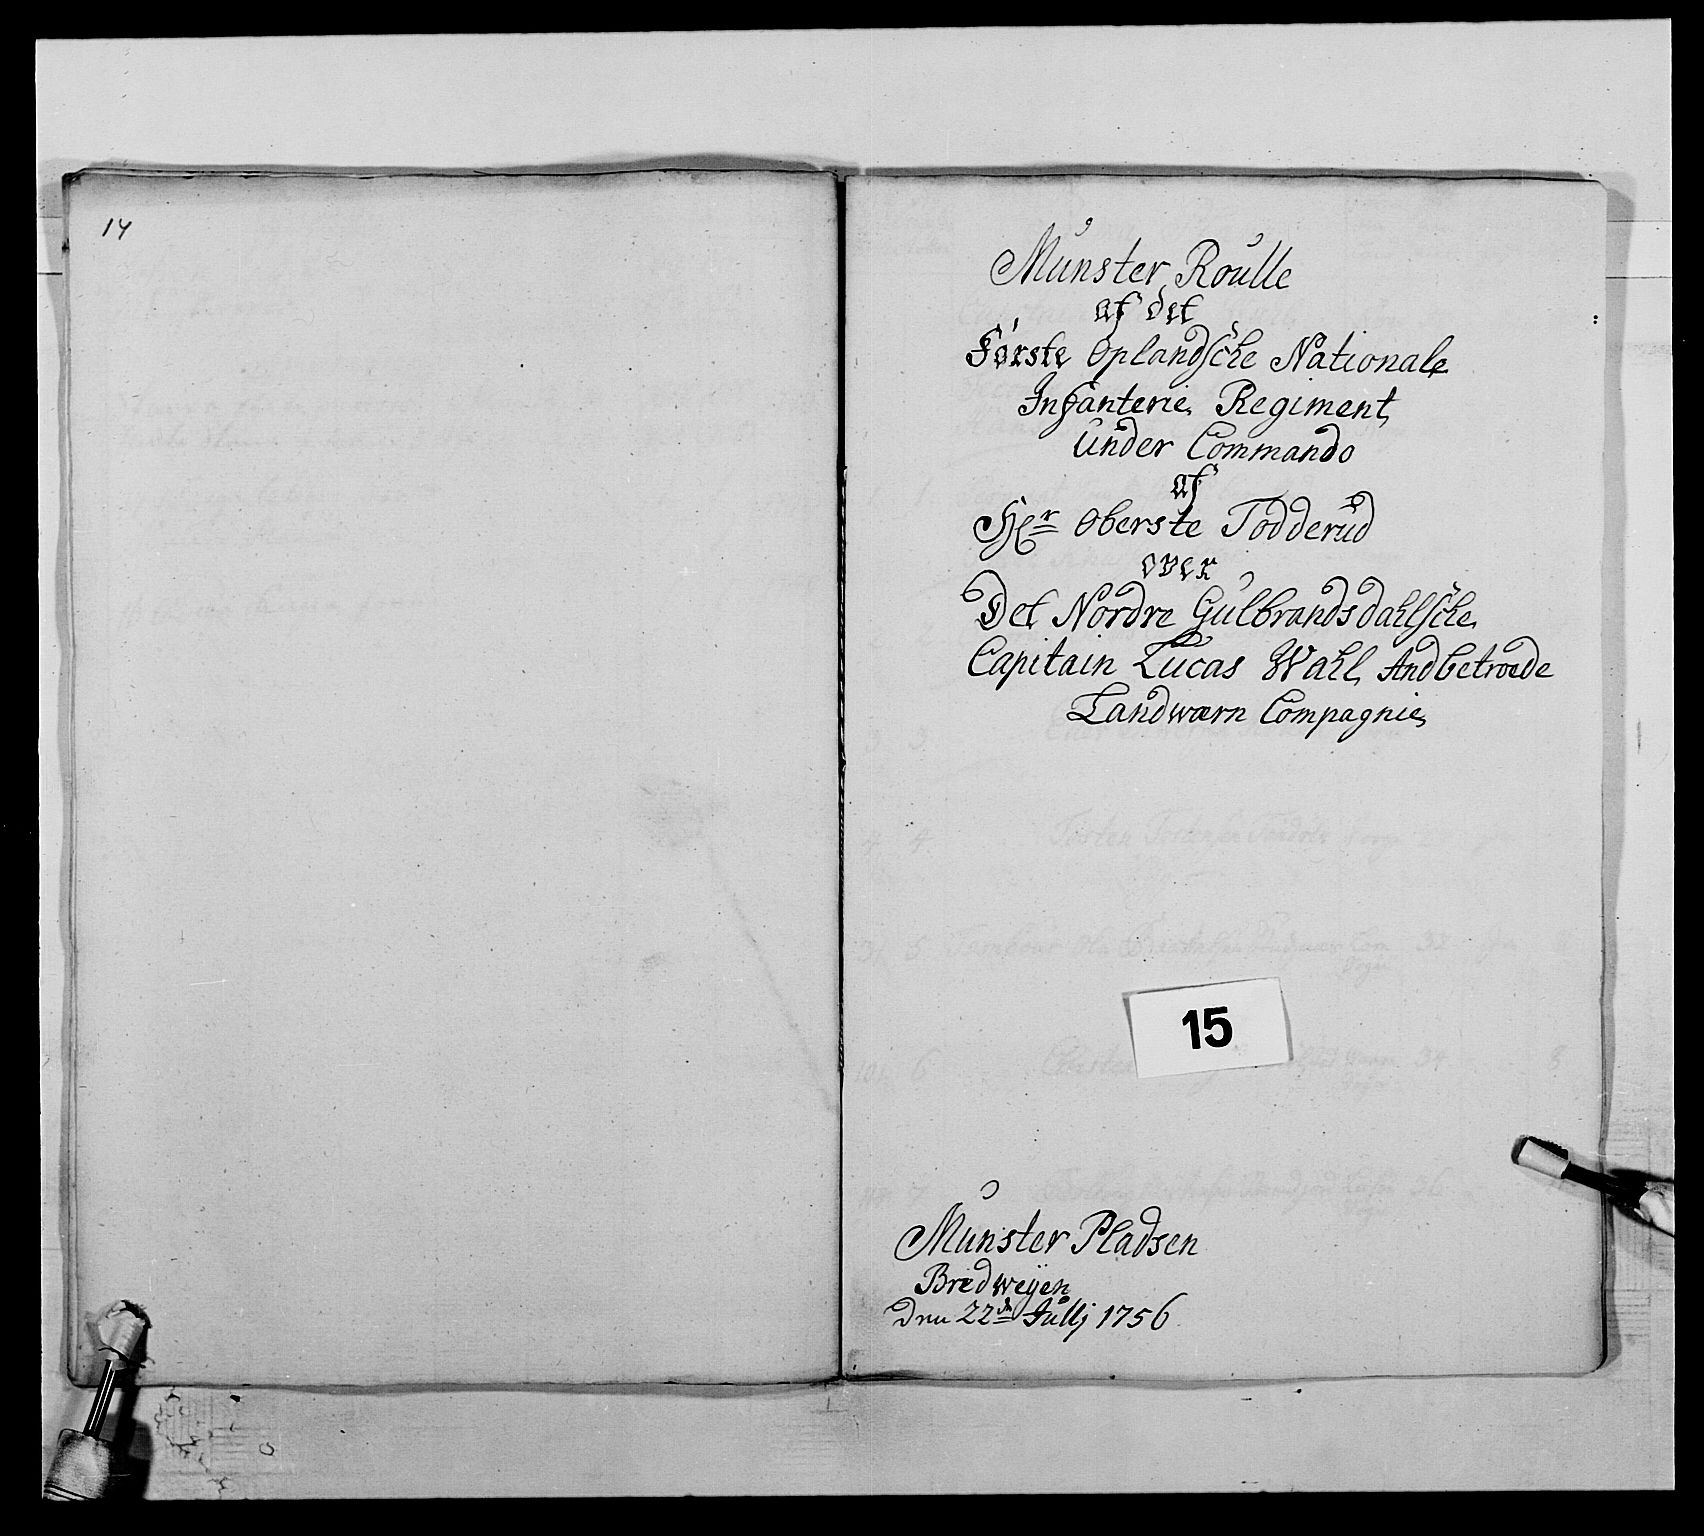 14
Munster Roulle
af det
Første Oplandsche Nationale
Infanterie Regiment
under Commando
af
Hr Oberste Todderud
over
Det Nordre Gulbrandsdahlsche
Capitain Lucas Wahl Andbetroede
Landwærn Compagnie
15
Munster Pladsen
Bredweyen
den 22de Jullj 1756